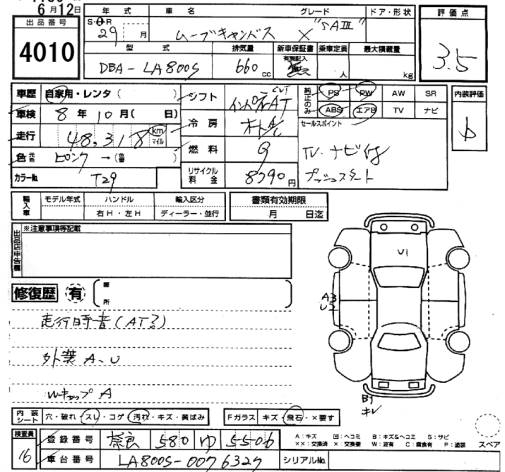 6月12日
出品番号
4010
年式 車名 グレード ドア・形状
S・H・R 29年 月 ムーブキャンバス X "SAⅢ"
型式 排気量 新車保証書 乗車定員 最大積載量
DBA-LA800S 660cc 人 kg
評価点
3.5
車歴 自家用・レンタ( )
車検 8年10月( 日)
走行 48,318 km マイル
色 ピンク→( )
カラーNo. T29
シフト インパネAT CVT
冷房 オートAC
燃料 G
リサイクル料金 8790円
PS PW AW SR
ABS エアB TV ナビ
セールスポイント
TV ナビ付
プッシュスタート
内装評価
b
輸入車 モデル年式 ハンドル 輸入区分
右H・左H ディーラー・並行
書類有効期限
月 日迄
※注意事項等記載
修復歴 有
箇所
走行時音(AT3)
外装 A、U
Wキャップ A
V1
A3
U2
内装シート 穴・破れ スレ・コゲ 汚れ・キズ・黄ばみ
Fガラス キズ 飛石・×要す
A:キズ U:ヘコミ B:キズ&ヘコミ S:サビ
スペア
検査員 16
登録番号 奈良 580 ゆ 5506
車台番号 LA800S-0076327
シリアルNo.